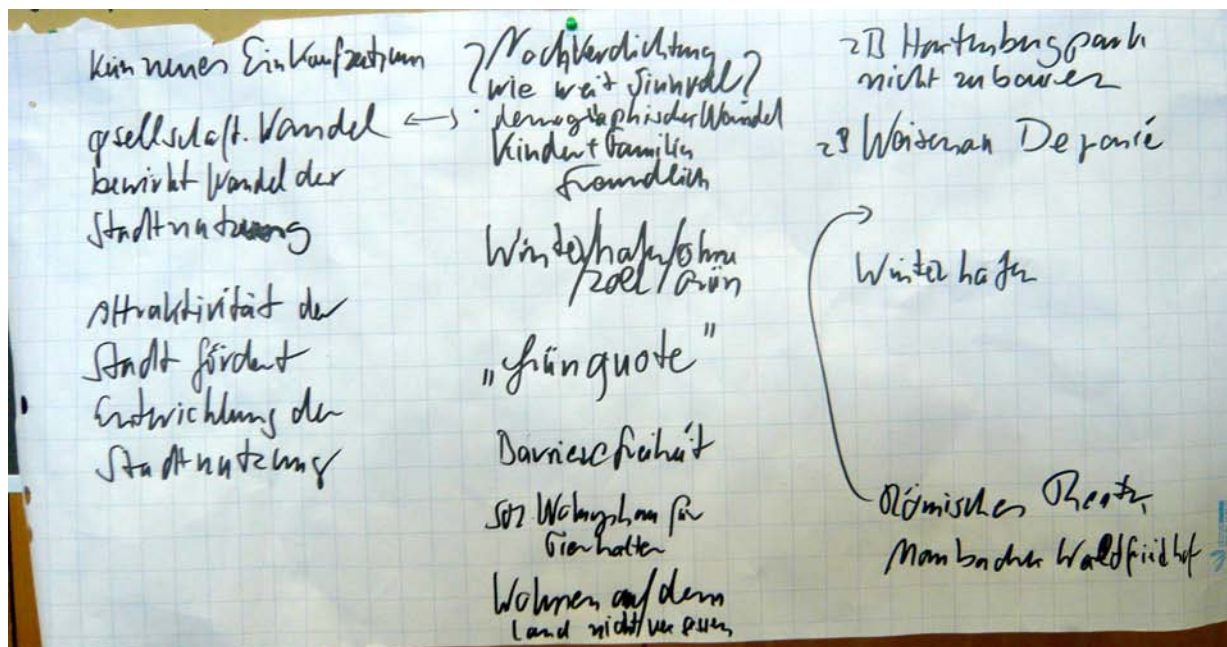 Kein neues Einkaufzentrum
gesellschaft. Wandel ↔
bewirkt Wandel der
Stadtnutzung
Attraktivität der
Stadt fördert
Entwicklung der
Stadtnutzung
? Nachverdichtung
wie weit sinnvoll ?
demographischer Wandel
Kinder + Familien
freundlich
Winterhafen / ohne
/ Grün
„Grünquote"
Barrierefreiheit
soz. Wohnungsbau für
Tierhalter
Wohnen auf dem
Land nicht vergessen
zB Hartenbergpark
nicht zubauen
zB Weisenau Deponie
Winterhafen
Römisches Theater
Mombacher Waldfriedhof